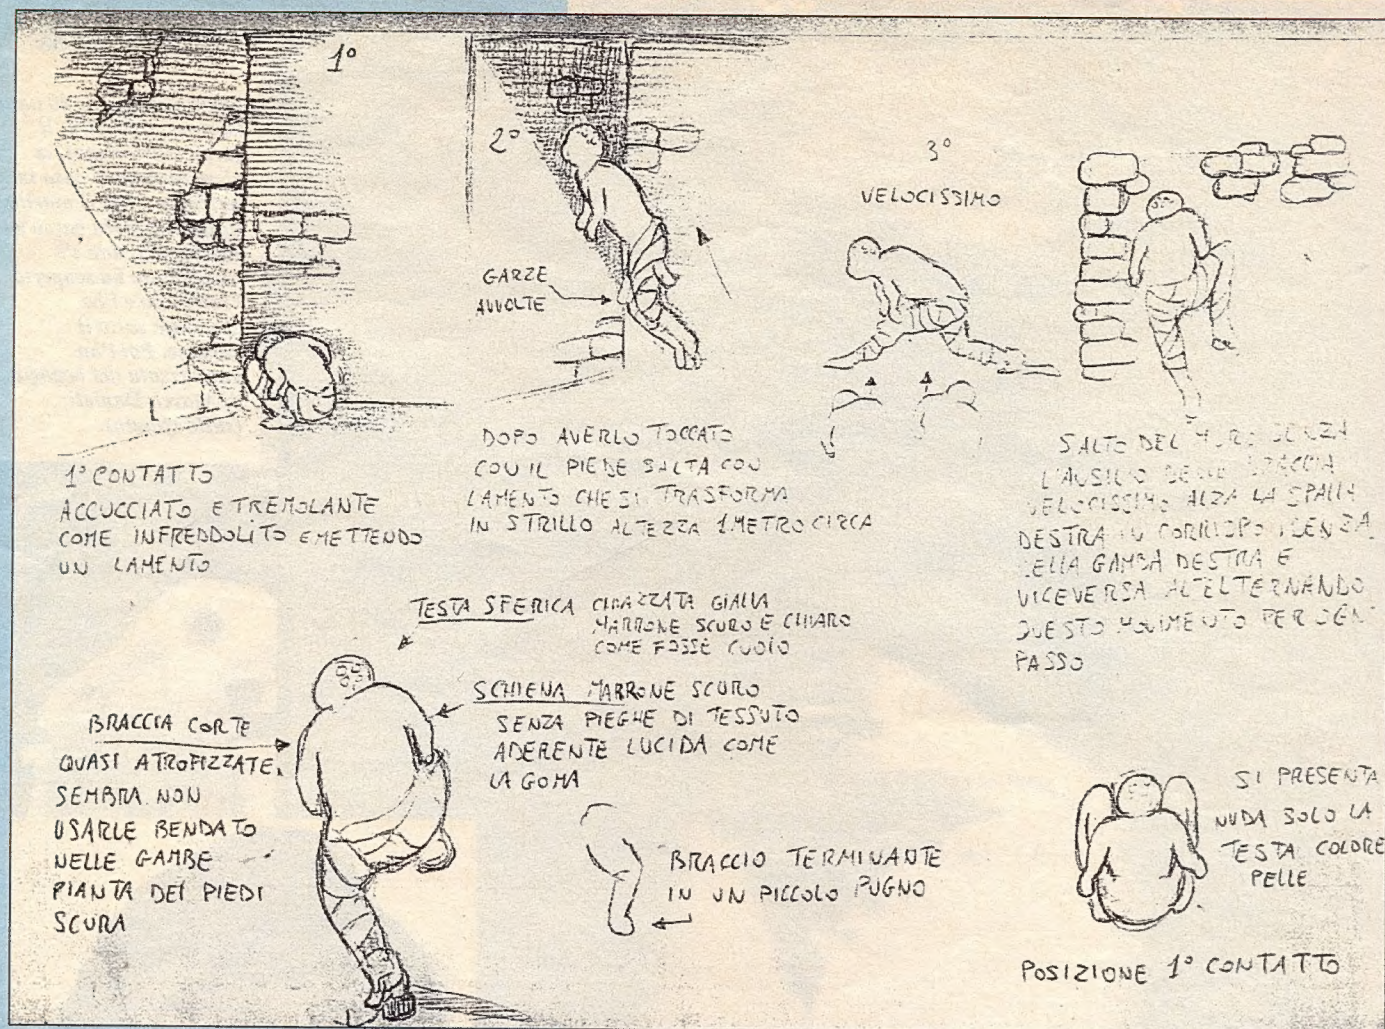 1°
2°
3°
VELOCISSIMO
GARZE
AVVOLTE
1° CONTATTO
ACCUCCIATO E TREMOLANTE
COME INFREDDOLITO EMETTENDO
UN LAMENTO
DOPO AVERLO TOCCATO
CON IL PIEDE SALTA CON
LAMENTO CHE SI TRASFORMA
IN STRILLO ALTEZZA 1 METRO CIRCA
SALTO DEL MURO SENZA
L'AUSILIO DELLE BRACCIA
VELOCISSIMO ALZA LA SPALLA
DESTRA IN CORRISPONDENZA
DELLA GAMBA DESTRA E
VICEVERSA ALTELTERNANDO
QUESTO MOVIMENTO PER OGNI
PASSO
TESTA SFERICA CHIAZZATA GIALLA
MARRONE SCURO E CHIARO
COME FOSSE CUOIO
SCHIENA MARRONE SCURO
SENZA PIEGHE DI TESSUTO
ADERENTE LUCIDA COME
LA GOMA
BRACCIA CORTE
QUASI ATROFIZZATE,
SEMBRA NON
USARLE BENDATO
NELLE GAMBE
PIANTA DEI PIEDI
SCURA
BRACCIO TERMINANTE
IN UN PICCOLO PUGNO
SI PRESENTA
NUDA SOLO LA
TESTA COLORE
PELLE
POSIZIONE 1° CONTATTO